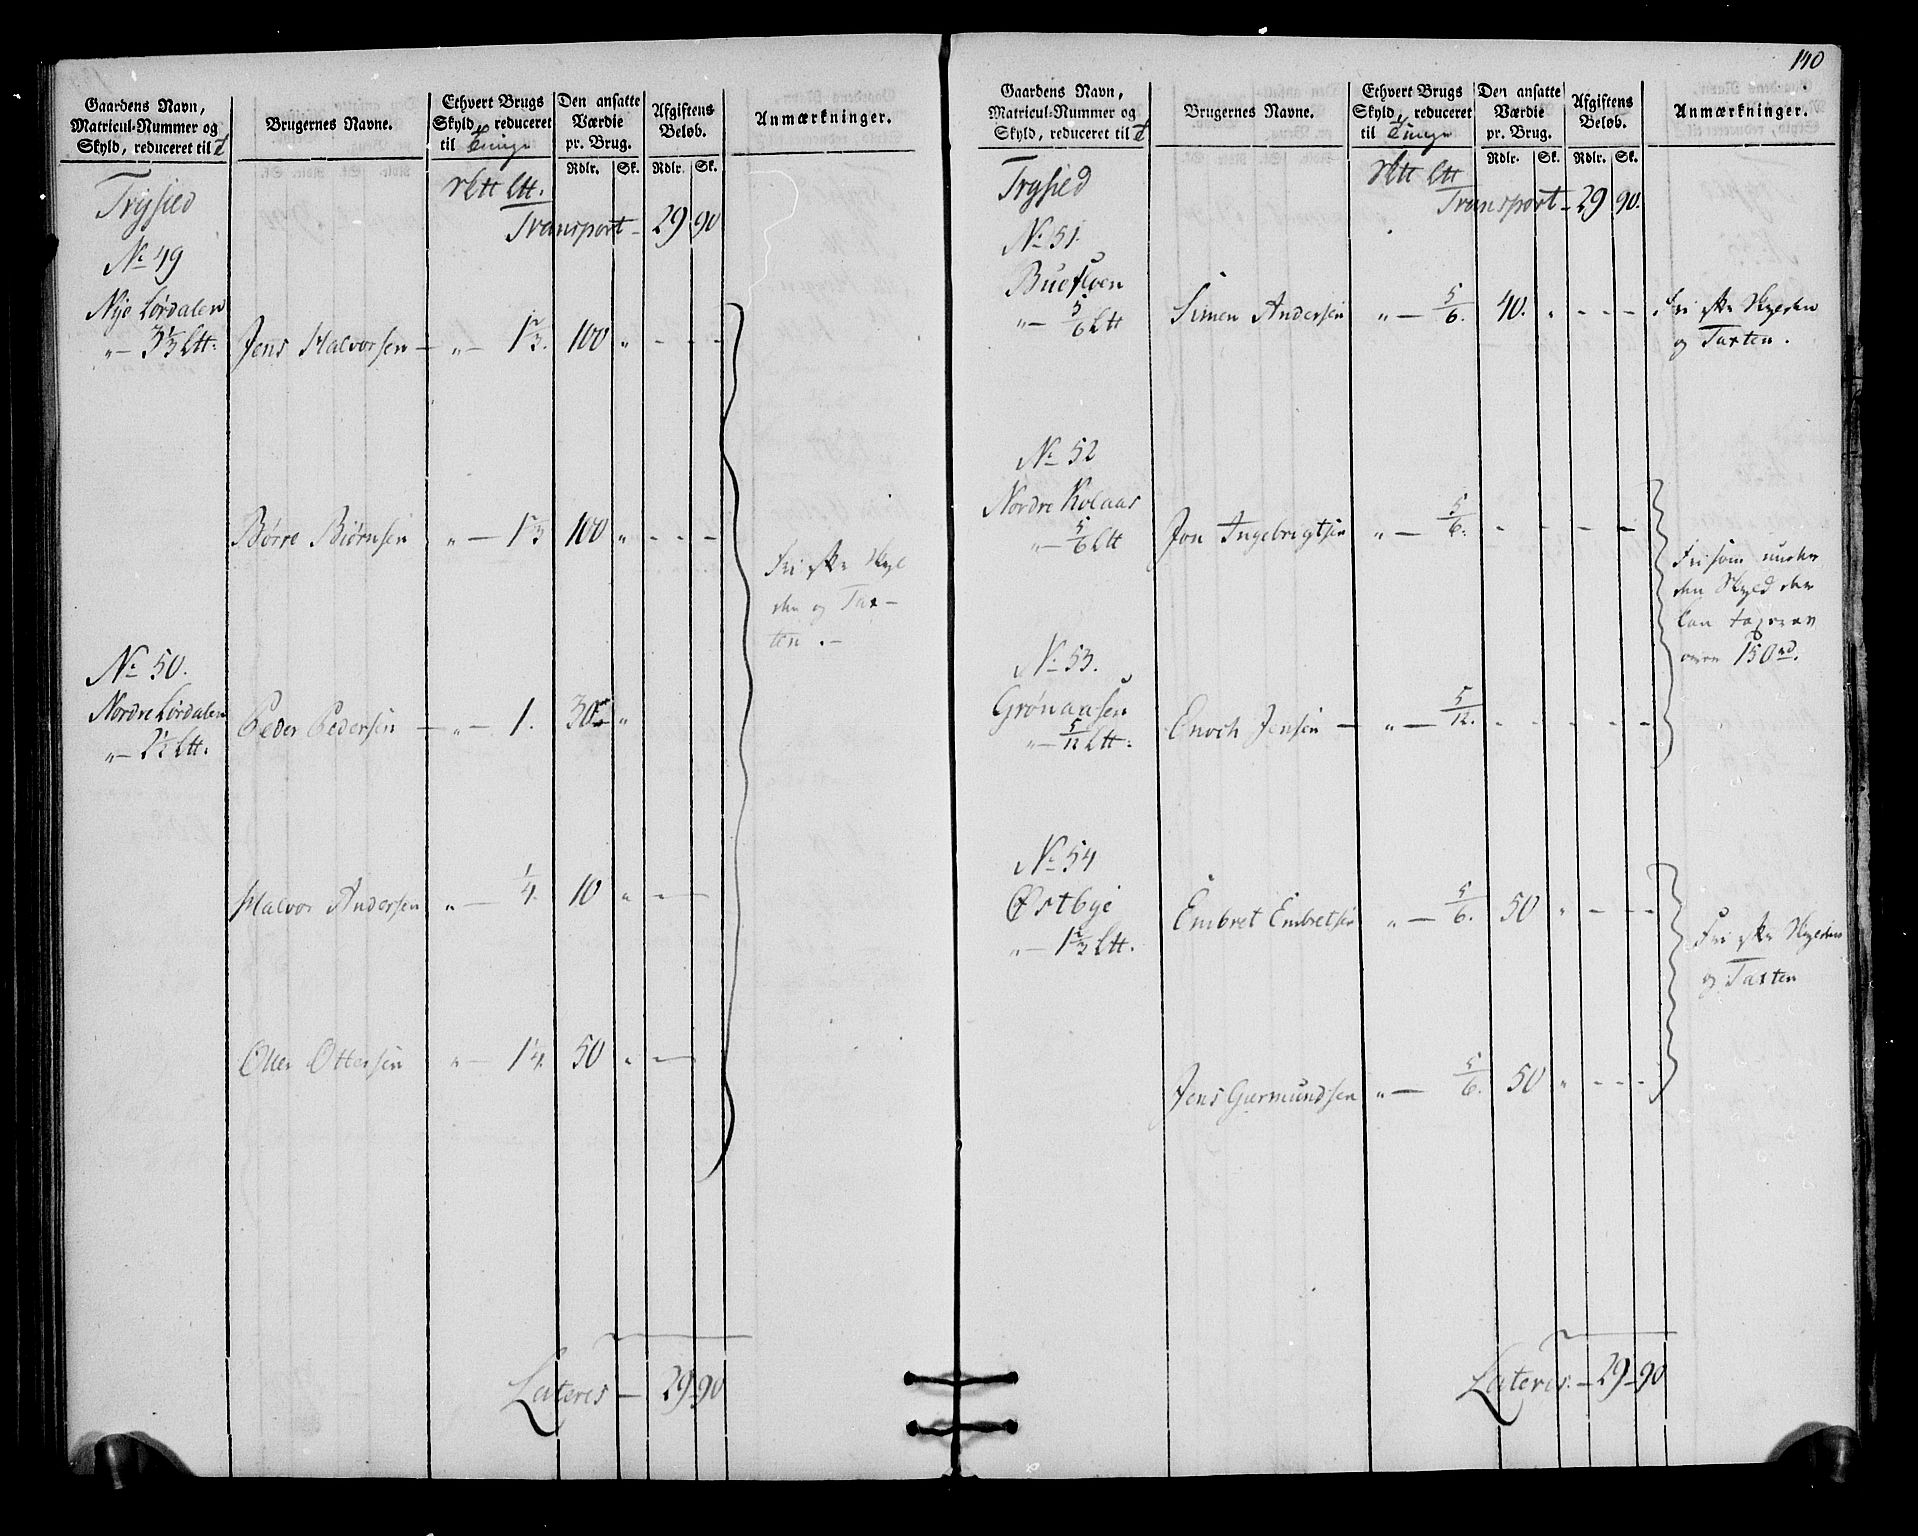 140
Gaardens Navn,
Matricul-Nummer og
Skyld, reduceret til
Brugernes Navne.
Ethvert Brugs
Skyld, reduceret
til Tunge
Den ansatte
Værdie
pr. Brug.
Rdlr. Sk.
Afgiftens
Beløb.
Rdlr. Sk.
Anmærkninger.
Trysied
Transport - 29 90
No 49
Nye Lørdalen
"- 3 1/3 Ltt:
Jens Halvorsen - " - 1 2/3. 100 " - - -
Børre Biørnsen " - 1 2/3 100 " - - -
Fri efter Skyl
den og Tax-
ten .-
No 50.
Nordre Lørdalen
"- 2 1/2 Ltt.
Peder Pedersen - " - 1. 30 "
Halvor Andersen " - 1/4. 10 " - -
Otter Ottersen " - 1 1/4. 50 " -
Lateris - 29 - 90
Gaardens Navn,
Matricul-Nummer og
Skyld, reduceret til
Brugernes Navne.
Ethvert Brugs
Skyld, reduceret
til Tunge
Den ansatte
Værdie
pr. Brug.
Rdlr. Sk.
Afgiftens
Beløb.
Rdlr. Sk.
Anmærkninger.
Trysied
Transport - 29 90.
No 51.
"- 5/6 Ltt
Simen Andersen " - 5/6. 40. " - - - Fri efter Skylden
og Taxten.
No 52
Nordre Kolaas
"- 5/6 Ltt
Jon Ingebrigtsen " - 5/6. - - - -
Fri som under
den Skyld der
kan taxeres
over 150 rd.
No 53.
Grønaasen
"- 5/12 Ltt:
Enoch Jensen - " - 5/12. - - - - -
No 54
Østbye
"- 1 2/3 Ltt.
Embret Embretsen " - 5/6. 50 " - - -
Fri efter Skylden
og Taxten
Jens Gurmundsen " - 5/6. 50 " - - -
Lateris. - 29 - 90